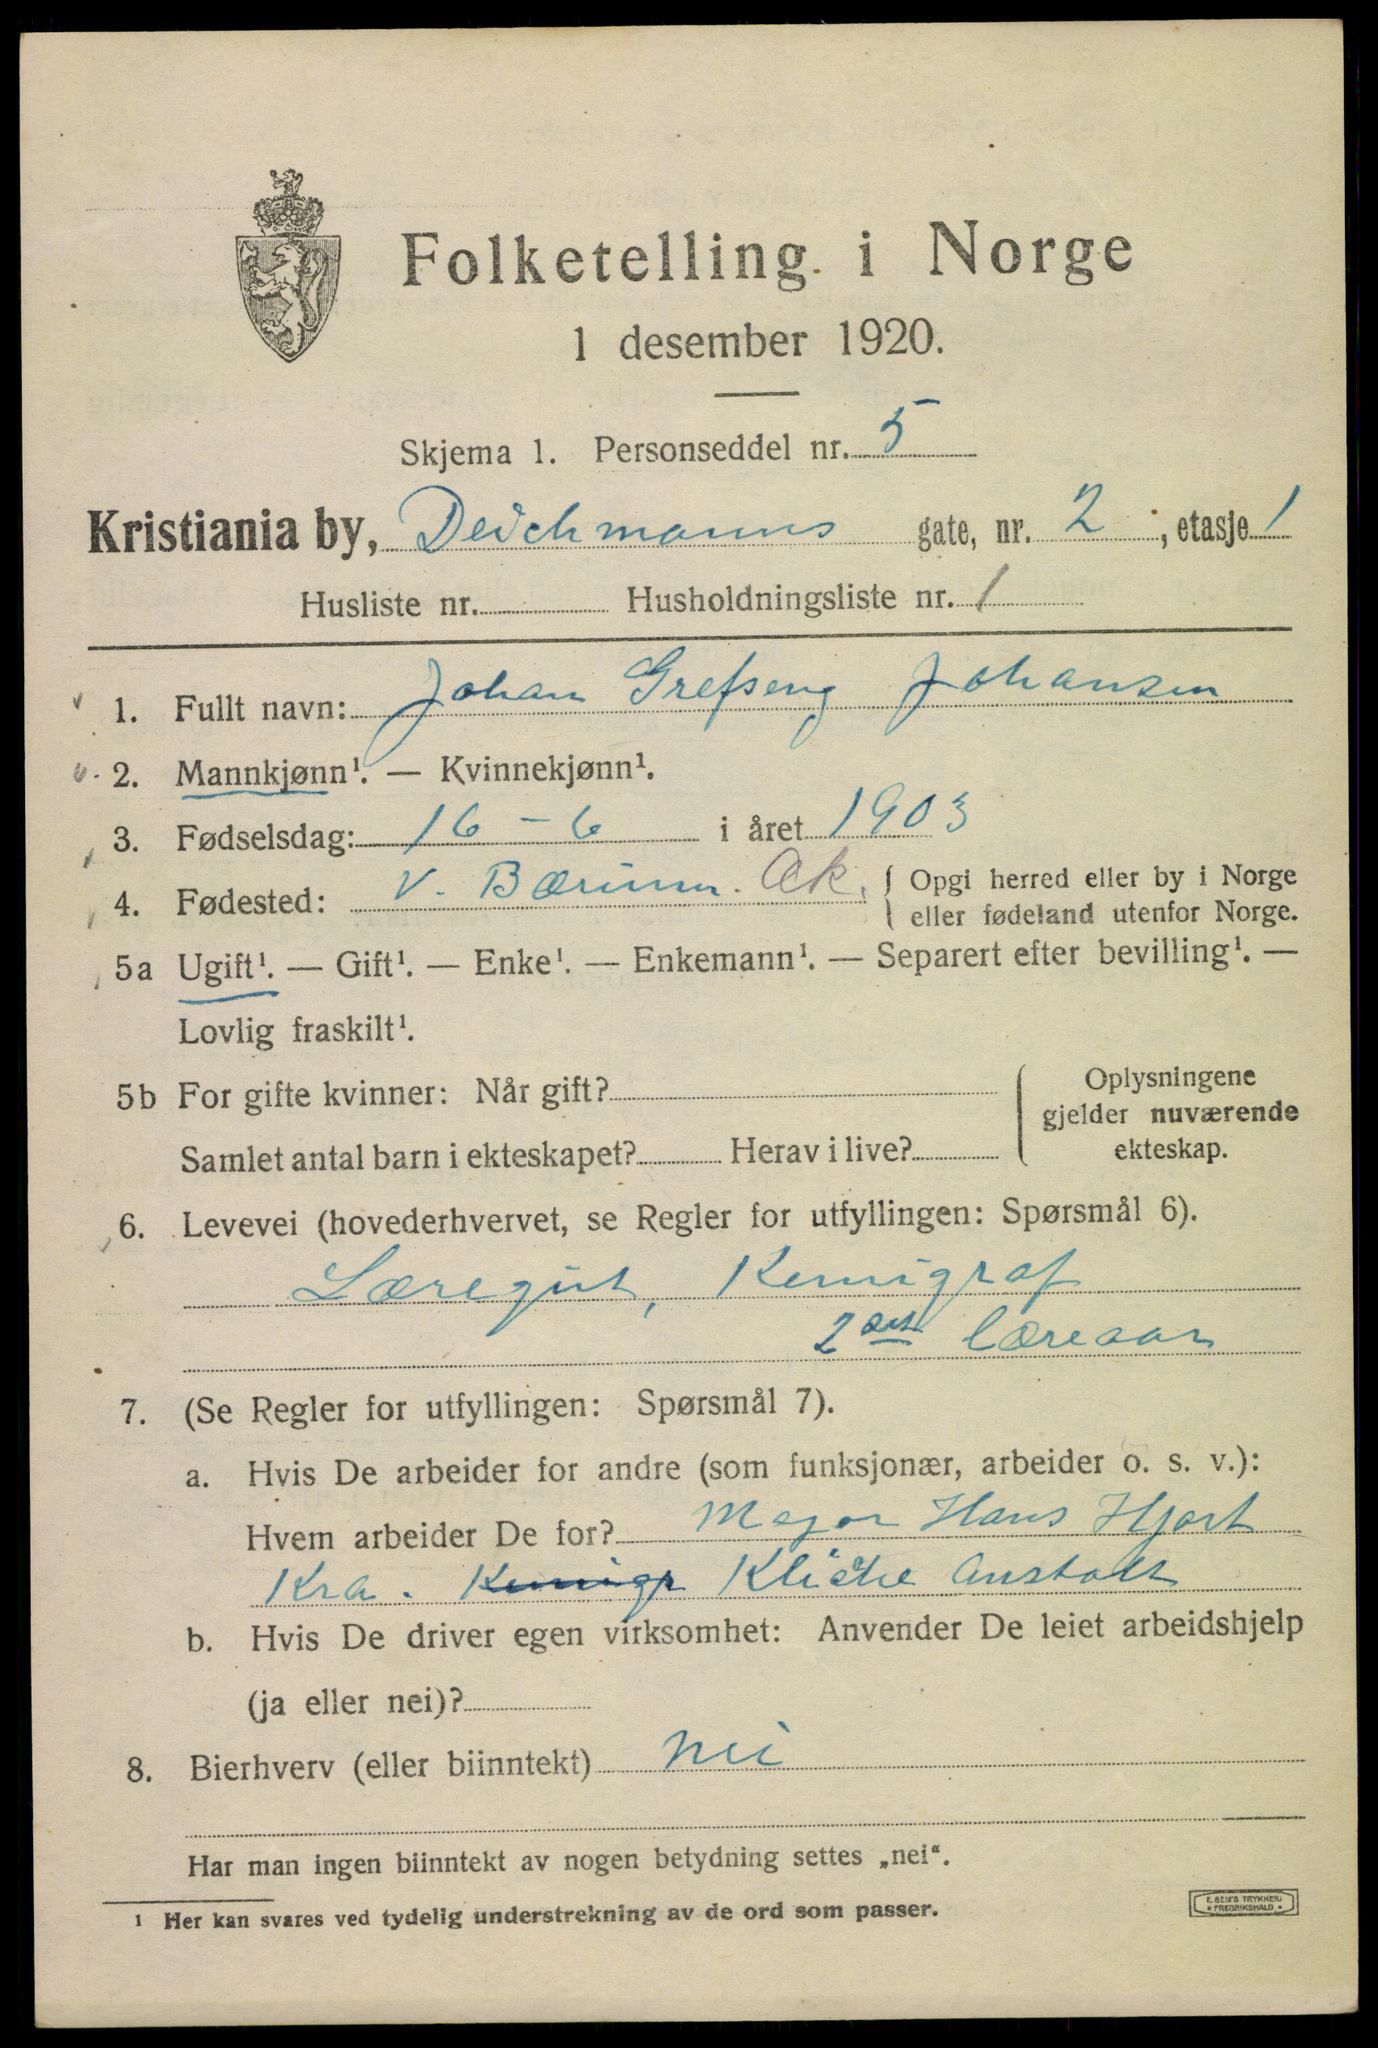 Folketelling i Norge
1 desember 1920.
Skjema 1. Personseddel nr. 5
Kristiania by, Deichmanns gate, nr. 2, etasje 1
Husliste nr. Husholdningsliste nr. 1
1. Fullt navn: Johan Grefseng Johansen
2. Mannkjønn¹. — Kvinnekjønn¹.
3. Fødselsdag: 16 - 6 i året 1903
4. Fødested: V. Bærum. Ak. { Opgi herred eller by i Norge
eller fødeland utenfor Norge.
5a Ugift¹. — Gift¹. — Enke¹. — Enkemann¹. — Separert efter bevilling¹. —
Lovlig fraskilt¹.
5b For gifte kvinner: Når gift?
Samlet antal barn i ekteskapet? Herav i live?
Oplysningene
gjelder nuværende
ekteskap.
6. Levevei (hovederhvervet, se Regler for utfyllingen: Spørsmål 6).
Læregut, Kemigraf
2det læreaar
7. (Se Regler for utfyllingen: Spørsmål 7).
a. Hvis De arbeider for andre (som funksjonær, arbeider o. s. v.):
Hvem arbeider De for? Major Hans Hjort
Kra. Kemigr Kliche Anstalt
b. Hvis De driver egen virksomhet: Anvender De leiet arbeidshjelp
(ja eller nei)?
8. Bierhverv (eller biinntekt) nei
Har man ingen biinntekt av nogen betydning settes „nei“.
¹ Her kan svares ved tydelig understrekning av de ord som passer.
E. SEM'S TRYKKERI
* FREDRIKSHALD *